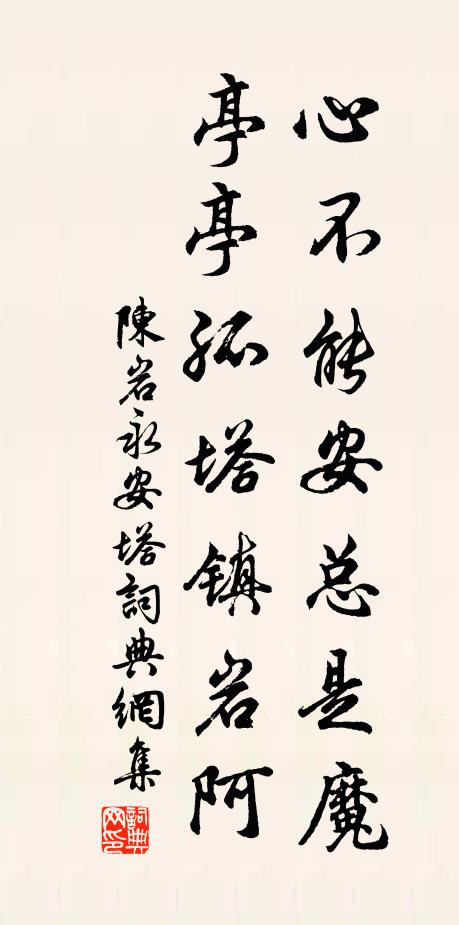 心不能安总是魔
亭亭孤塔镇岩阿
陳岩永安塔詞典網集
詞典網印